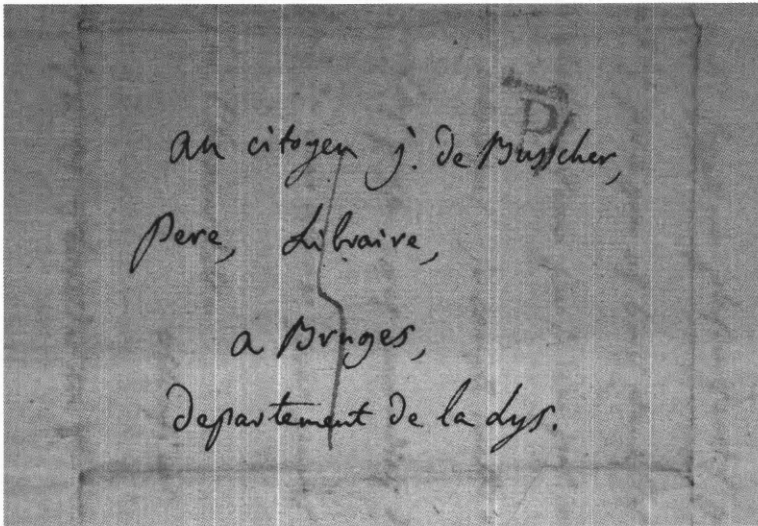 D
au citoyen j. de Busscher,
Pere, Libraire,
a Bruges,
departement de la Lys.